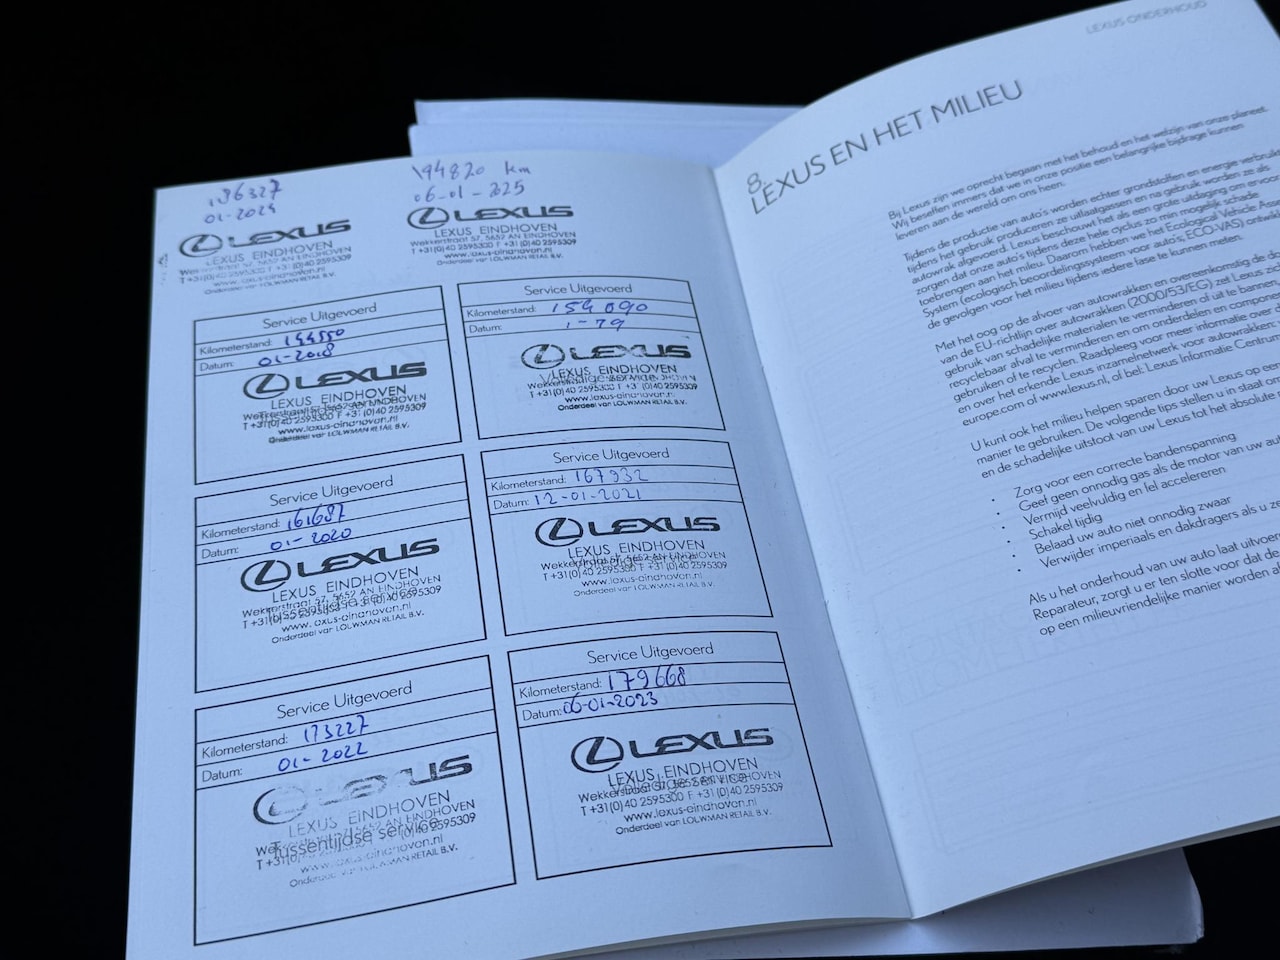 186327
01-2024
LEXUS
LEXUS EINDHOVEN
T +31(0)40 2595300 F +31(0)40 2595309
www.lexus-eindhoven.nl
Onderdeel van LOUWMAN RETAIL B.V.
194820 km
06-01-2025
LEXUS
LEXUS EINDHOVEN
Wekkerstraat 57, 5652 AN EINDHOVEN
T +31(0)40 2595300 F +31(0)40 2595309
www.lexus-eindhoven.nl
Onderdeel van LOUWMAN RETAIL B.V.
Service Uitgevoerd
Kilometerstand: 144550
Datum: 01-2018
LEXUS
LEXUS EINDHOVEN
T +31(0)40 2595300 F +31(0)40 2595309
www.lexus-eindhoven.nl
Onderdeel van LOUWMAN RETAIL B.V.
Service Uitgevoerd
Kilometerstand: 154090
Datum: 1-19
LEXUS
LEXUS EINDHOVEN
T +31(0)40 2595300 F +31(0)40 2595309
www.lexus-eindhoven.nl
Onderdeel van LOUWMAN RETAIL B.V.
Service Uitgevoerd
Kilometerstand: 161687
Datum: 01-2020
LEXUS
LEXUS EINDHOVEN
Wekkerstraat 57, 5652 AN EINDHOVEN
Tussentijdse service
T +31(0)40 2595300 F +31(0)40 2595309
www.lexus-eindhoven.nl
Onderdeel van LOUWMAN RETAIL B.V.
Service Uitgevoerd
Kilometerstand: 167932
Datum: 12-01-2021
LEXUS
LEXUS EINDHOVEN
Wekkerstraat 57, 5652 AN EINDHOVEN
T +31(0)40 2595300 F +31(0)40 2595309
www.lexus-eindhoven.nl
Onderdeel van LOUWMAN RETAIL B.V.
Service Uitgevoerd
Kilometerstand: 173227
Datum: 01-2022
LEXUS
LEXUS EINDHOVEN
Tussentijdse service
www.lexus-eindhoven.nl
Onderdeel van LOUWMAN RETAIL B.V.
Service Uitgevoerd
Kilometerstand: 179668
Datum: 06-01-2023
LEXUS
LEXUS EINDHOVEN
Wekkerstraat 57, 5652 AN EINDHOVEN
Volledige service
T +31(0)40 2595300 F +31(0)40 2595309
www.lexus-eindhoven.nl
Onderdeel van LOUWMAN RETAIL B.V.
LEXUS ONDERHOUD
8.
LEXUS EN HET MILIEU
Bij Lexus zijn we oprecht begaan met het behoud en het welzijn van onze planeet.
Wij beseffen immers dat we in onze positie een belangrijke bijdrage kunnen
leveren aan de wereld om ons heen.
Tijdens de productie van auto's worden echter grondstoffen en energie verbruikt,
tijdens het gebruik produceren ze uitlaatgassen en na gebruik worden ze als
autowrak afgevoerd. Lexus beschouwt het als een grote uitdaging om ervoor
zorgen dat onze auto's tijdens deze hele cyclus zo min mogelijk schade
toebrengen aan het milieu. Daarom hebben we het Ecological Vehicle Asse
System (ecologisch beoordelingssysteem voor auto's, ECO-VAS) ontwik
de gevolgen voor het milieu tijdens iedere fase te kunnen meten.
Met het oog op de afvoer van autowrakken en overeenkomstig de do
van de EU-richtlijn over autowrakken (2000/53/EG) zet Lexus zic
gebruik van schadelijke materialen te verminderen of uit te bannen,
recyclebaar afval te verminderen en om onderdelen en componen
gebruiken of te recyclen. Raadpleeg voor meer informatie over d
en over het erkende Lexus inzamelnetwerk voor autowrakken:
europe.com of www.lexus.nl, of bel: Lexus Informatie Centrum
U kunt ook het milieu helpen sparen door uw Lexus op een
manier te gebruiken. De volgende tips stellen u in staat om
en de schadelijke uitstoot van uw Lexus tot het absolute
• Zorg voor een correcte bandenspanning
• Geef geen onnodig gas als de motor van uw aut
• Vermijd veelvuldig en fel accelereren
• Schakel tijdig
• Belaad uw auto niet onnodig zwaar
• Verwijder imperiaals en dakdragers als u ze
Als u het onderhoud van uw auto laat uitvoe
Reparateur, zorgt u er ten slotte voor dat de
op een milieuvriendelijke manier worden a